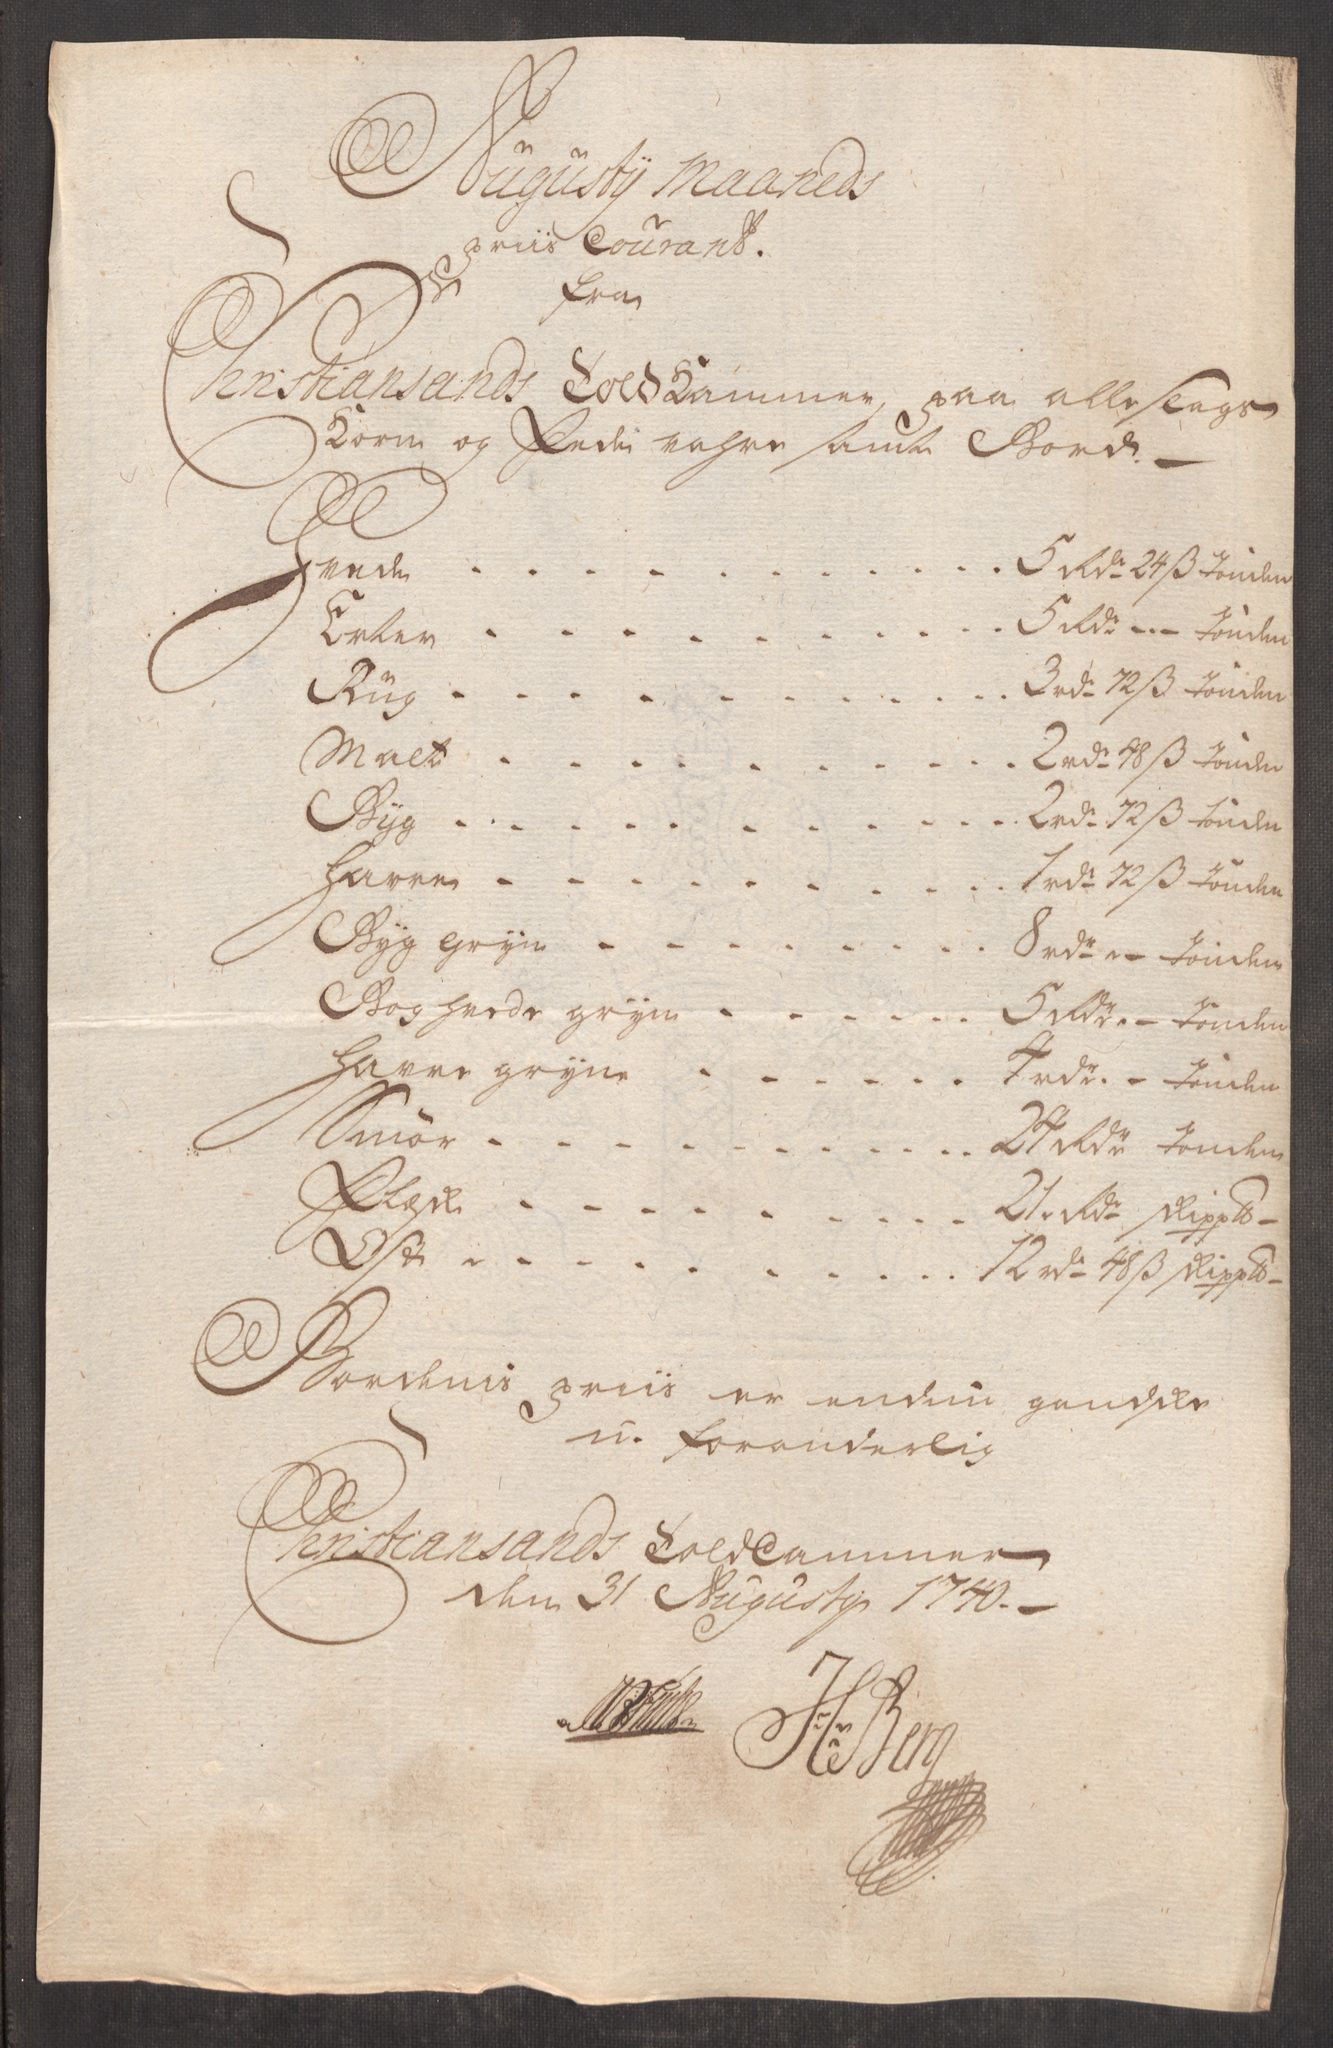 Augustij Maaneds
Priis Courant.
fra
Christiansands Told Kammer, paa alle slags
Korn og Fede vahre samt Bord. —
Hvede . . . . . . . . . . . 5 Rdr 24 ß tønden
Erter . . . . . . . . . . . 5 Rdr - - tønden
Rüg . . . . . . . . . . . 3 rdr 72 ß tønden
Malt . . . . . . . . . . . 2 rdr 48 ß tønden
Byg . . . . . . . . . . . 2 rdr 72 ß tønden
Havre . . . . . . . . . . . 1 rdr 72 ß tønden
Byg gryn . . . . . . . . . 8 rdr - - tønden
Boghvede gryn . . . . . . 5 Rdr . - tønden
Havre gryn . . . . . . 4 rdr . - tønden
Smør . . . . . . . . . . 24 Rdr tønden
Flesk . . . . . . . . . 21. Rdr Skippd -
Ost . . . . . . . . . . 12 rdr 48 ß Skippd -
Bordenis priis er endnu gandske
u-foranderlig
Christiansands Told Cammer
den 31 Augustij 1740. —
H Berg